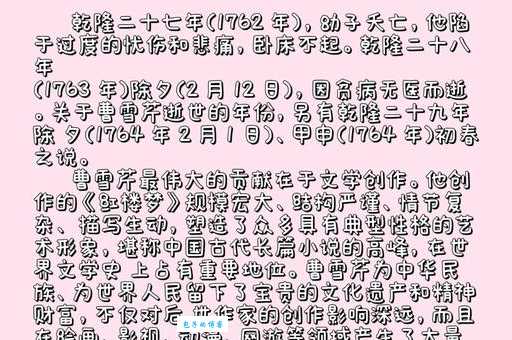 乾隆二十七年(1762 年)，幼子夭亡，他陷
于过度的忧伤和悲痛，卧床不起。乾隆二十八
年
(1763 年)除夕(2 月 12 日)，因贫病无医而逝
。关于曹雪芹逝世的年份，另有乾隆二十九年
除 夕(1764 年 2 月 1 日)、甲申(1764 年)初春
之说。
曹雪芹最伟大的贡献在于文学创作。他创
作的《红楼梦》规模宏大、结构严谨、情节复
杂、描写生动，塑造了众多具有典型性格的艺
术形象，堪称中国古代长篇小说的高峰，在世
界文学史 上占有重要地位。曹雪芹为中华民
族、为世界人民留下了宝贵的文化遗产和精神
财富，不仅对后世作家的创作影响深远，而且
在绘画、影视、动漫、网游等领域产生了大量